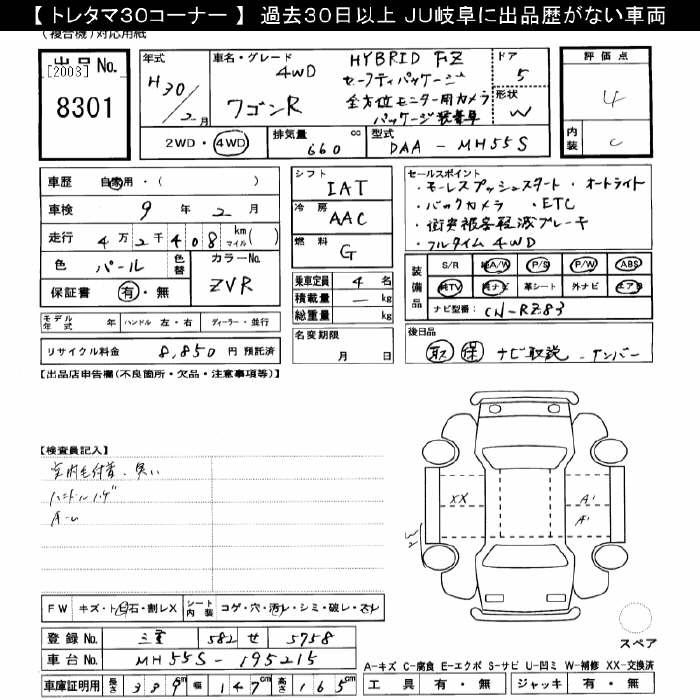 【 トレタマ30コーナー 】 過去30日以上 JU岐阜に出品歴がない車両
(複合機)対応用紙
出品No.
[2003]
8301
年式
H30/2月
車名・グレード
4WD
HYBRID FZ
セーフティパッケージ
ワゴンR
全方位モニター用カメラ
パッケージ装着車
ドア
5
形状
W
評価点
4
内装
C
2WD・4WD
排気量 660 cc
型式 DAA-MH55S
車歴 自家用・( )
車検 9年2月
走行 4万2千408 km マイル( )
色 パール
色替
カラーNo.
ZVR
保証書 有・無
シフト
IAT
冷房
AAC
燃料
G
乗車定員 4名
積載量 — kg
総重量 kg
セールスポイント
・モーレスプッシュスタート ・オートライト
・バックカメラ ・ETC
・衝突被害軽減ブレーキ
・フルタイム4WD
装備品
S/R 純A/W P/S P/W ABS
純TV 純ナビ 革シート 外ナビ エアB
ナビ型番: CN-RZ83
モデル年式 年 ハンドル 左・右 ディーラー・並行
リサイクル料金 8,850 円 預託済
名変期限
月 日
後日品
取 保 ナビ取説 ナンバー
【出品店申告欄(不良箇所・欠品・注意事項等)】
【検査員記入】
室内毛付着、臭い
ハンドルハゲ
A-U
XX
A'
A'
W2
FW キズ・ト・飛石・割レX
シート内装 コゲ・穴・汚レ・シミ・破レ・スレ
登録No. 三重 582 せ 5758
車台No. MH55S-195215
車庫証明用 長さ 339cm 幅 147cm 高さ 165cm
スペア
A-キズ C-腐食 E-エクボ S-サビ U-凹ミ W-補修 XX-交換済
工具 有・無 ジャッキ 有・無